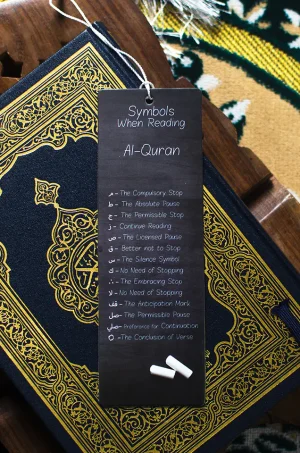 Symbols
When Reading
Al-Quran
م - The Compulsory Stop
ط - The Absolute Pause
ج - The Permissible Stop
ز - Continue Reading
ص - The Licensed Pause
ق - Better not to Stop
س - The Silence Symbol
ك - No Need of Stopping
∴ - The Embracing Stop
لا - No Need of Stopping
قف - The Anticipation Mark
صل - The Permissible Pause
صلي - Preference for Continuation
O - The Conclusion of Verse